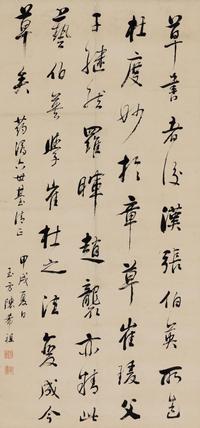 草書者後漢張伯英所造
杜度妙於章草崔瑗父
子繼能羅暉趙襲亦精此
藝伯英學崔杜之法變成今
草矣
六世
甲戌夏日
玉方陳希祖